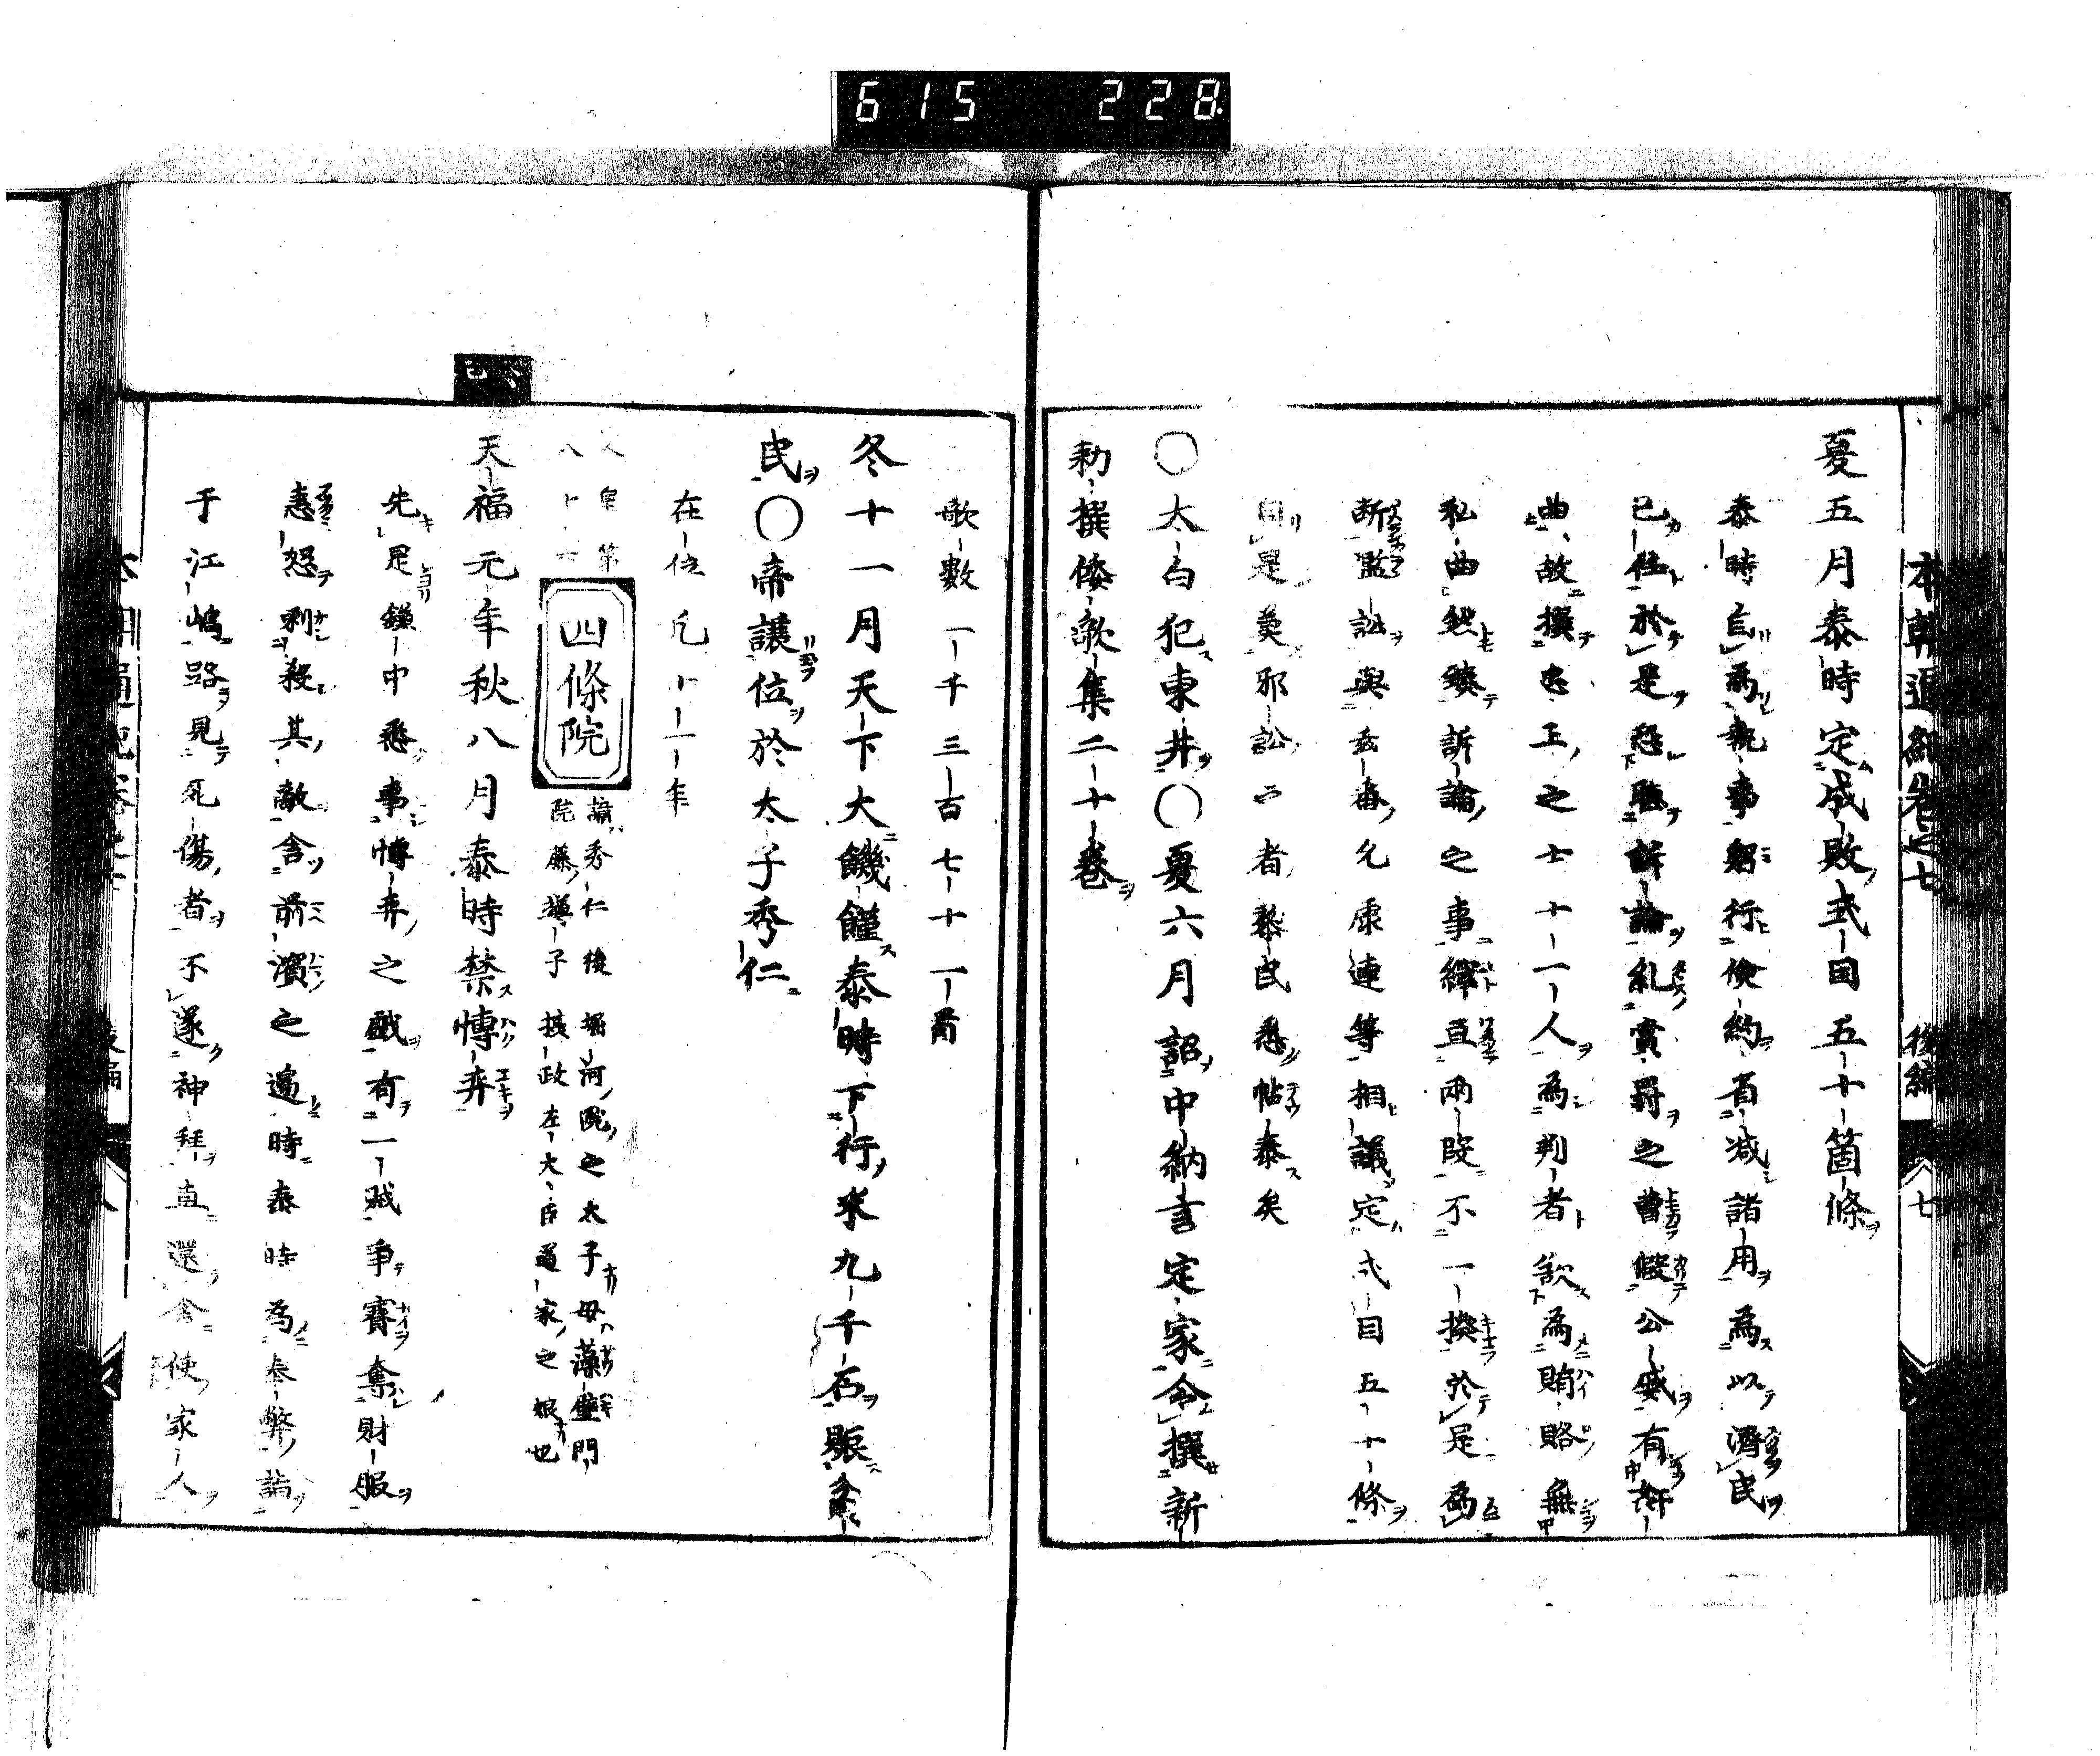 615 228
本朝通紀卷之七 後編 七
夏五月泰時定成敗式目五十箇條
泰時自為執事躬行儉約省減諸用為以濟民
己任於是恐聽訴論糺賞罰之曹假公威有奸
曲故撰忠正之士十一人為判者欲為賄賂無
私曲然緩訴論之事繹亘兩段不一揆於是為
断濫訟與玄番允康連等相議定式目五十條
自是姦邪訟者黎民悉帖泰矣
〇太白犯東井〇夏六月詔中納言定家令撰新
勅撰倭歌集二十卷
歌數一千三百七十一首
冬十一月天下大饑饉泰時下行米九千石賑貧
民〇帝讓位於太子秀仁
在位凡十一年
人皇第八十六 四條院 諱秀仁後堀河院之太子母藻壁門院藤㙾子攝政左大臣道家之娘也
天福元年秋八月泰時禁慱弈
先是鎌中悉事慱弈之戯有一賊爭賽奪財服
恚怒刺殺其敵含前濱之邉時泰時為奉幣詣
于江嶋路見死傷者不遂神拜直還令使家人
癸巳